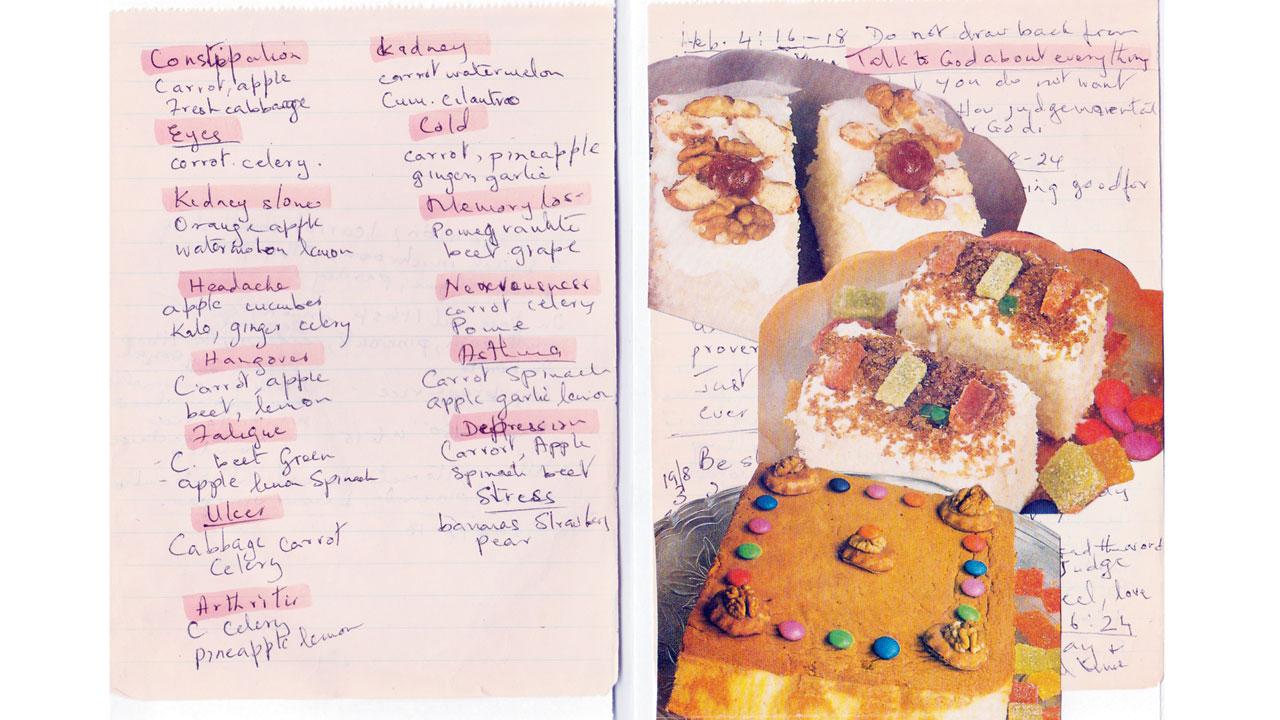 Constipation
Carrot, apple
Fresh cabbage
Eyes
corrot. celery.
Kidney stone
Orange apple
watermelon lemon
Headache
apple cucumber
Kale, ginger celery
Hangover
Carrot, apple
beet, lemon
Fatigue
- C. beet Green
- apple lemon Spinach
Ulcer
Cabbage Carrot
Celery
Arthritis
C Celery
pineapple lemon
Kidney
corrot watermelon
Cum. cilantro
Cold
carrot, pineapple
ginger garlic
Memory los-
Pomegranate
beet grape
Nervousness
carrot celery
Pome
Asthma
Carrot Spinach
apple garlic lemon
Depression
Carrot, Apple
Spinach beet
Stress
bananas Strawbery
pear
Heb. 4:16-18 Do not draw back from
Talk to God about everything
you do not want
How judgemental
God.
8-24
ing good for
prover
Just
ever
19/8 Be s
Judge
cel, love
6:24
ay +